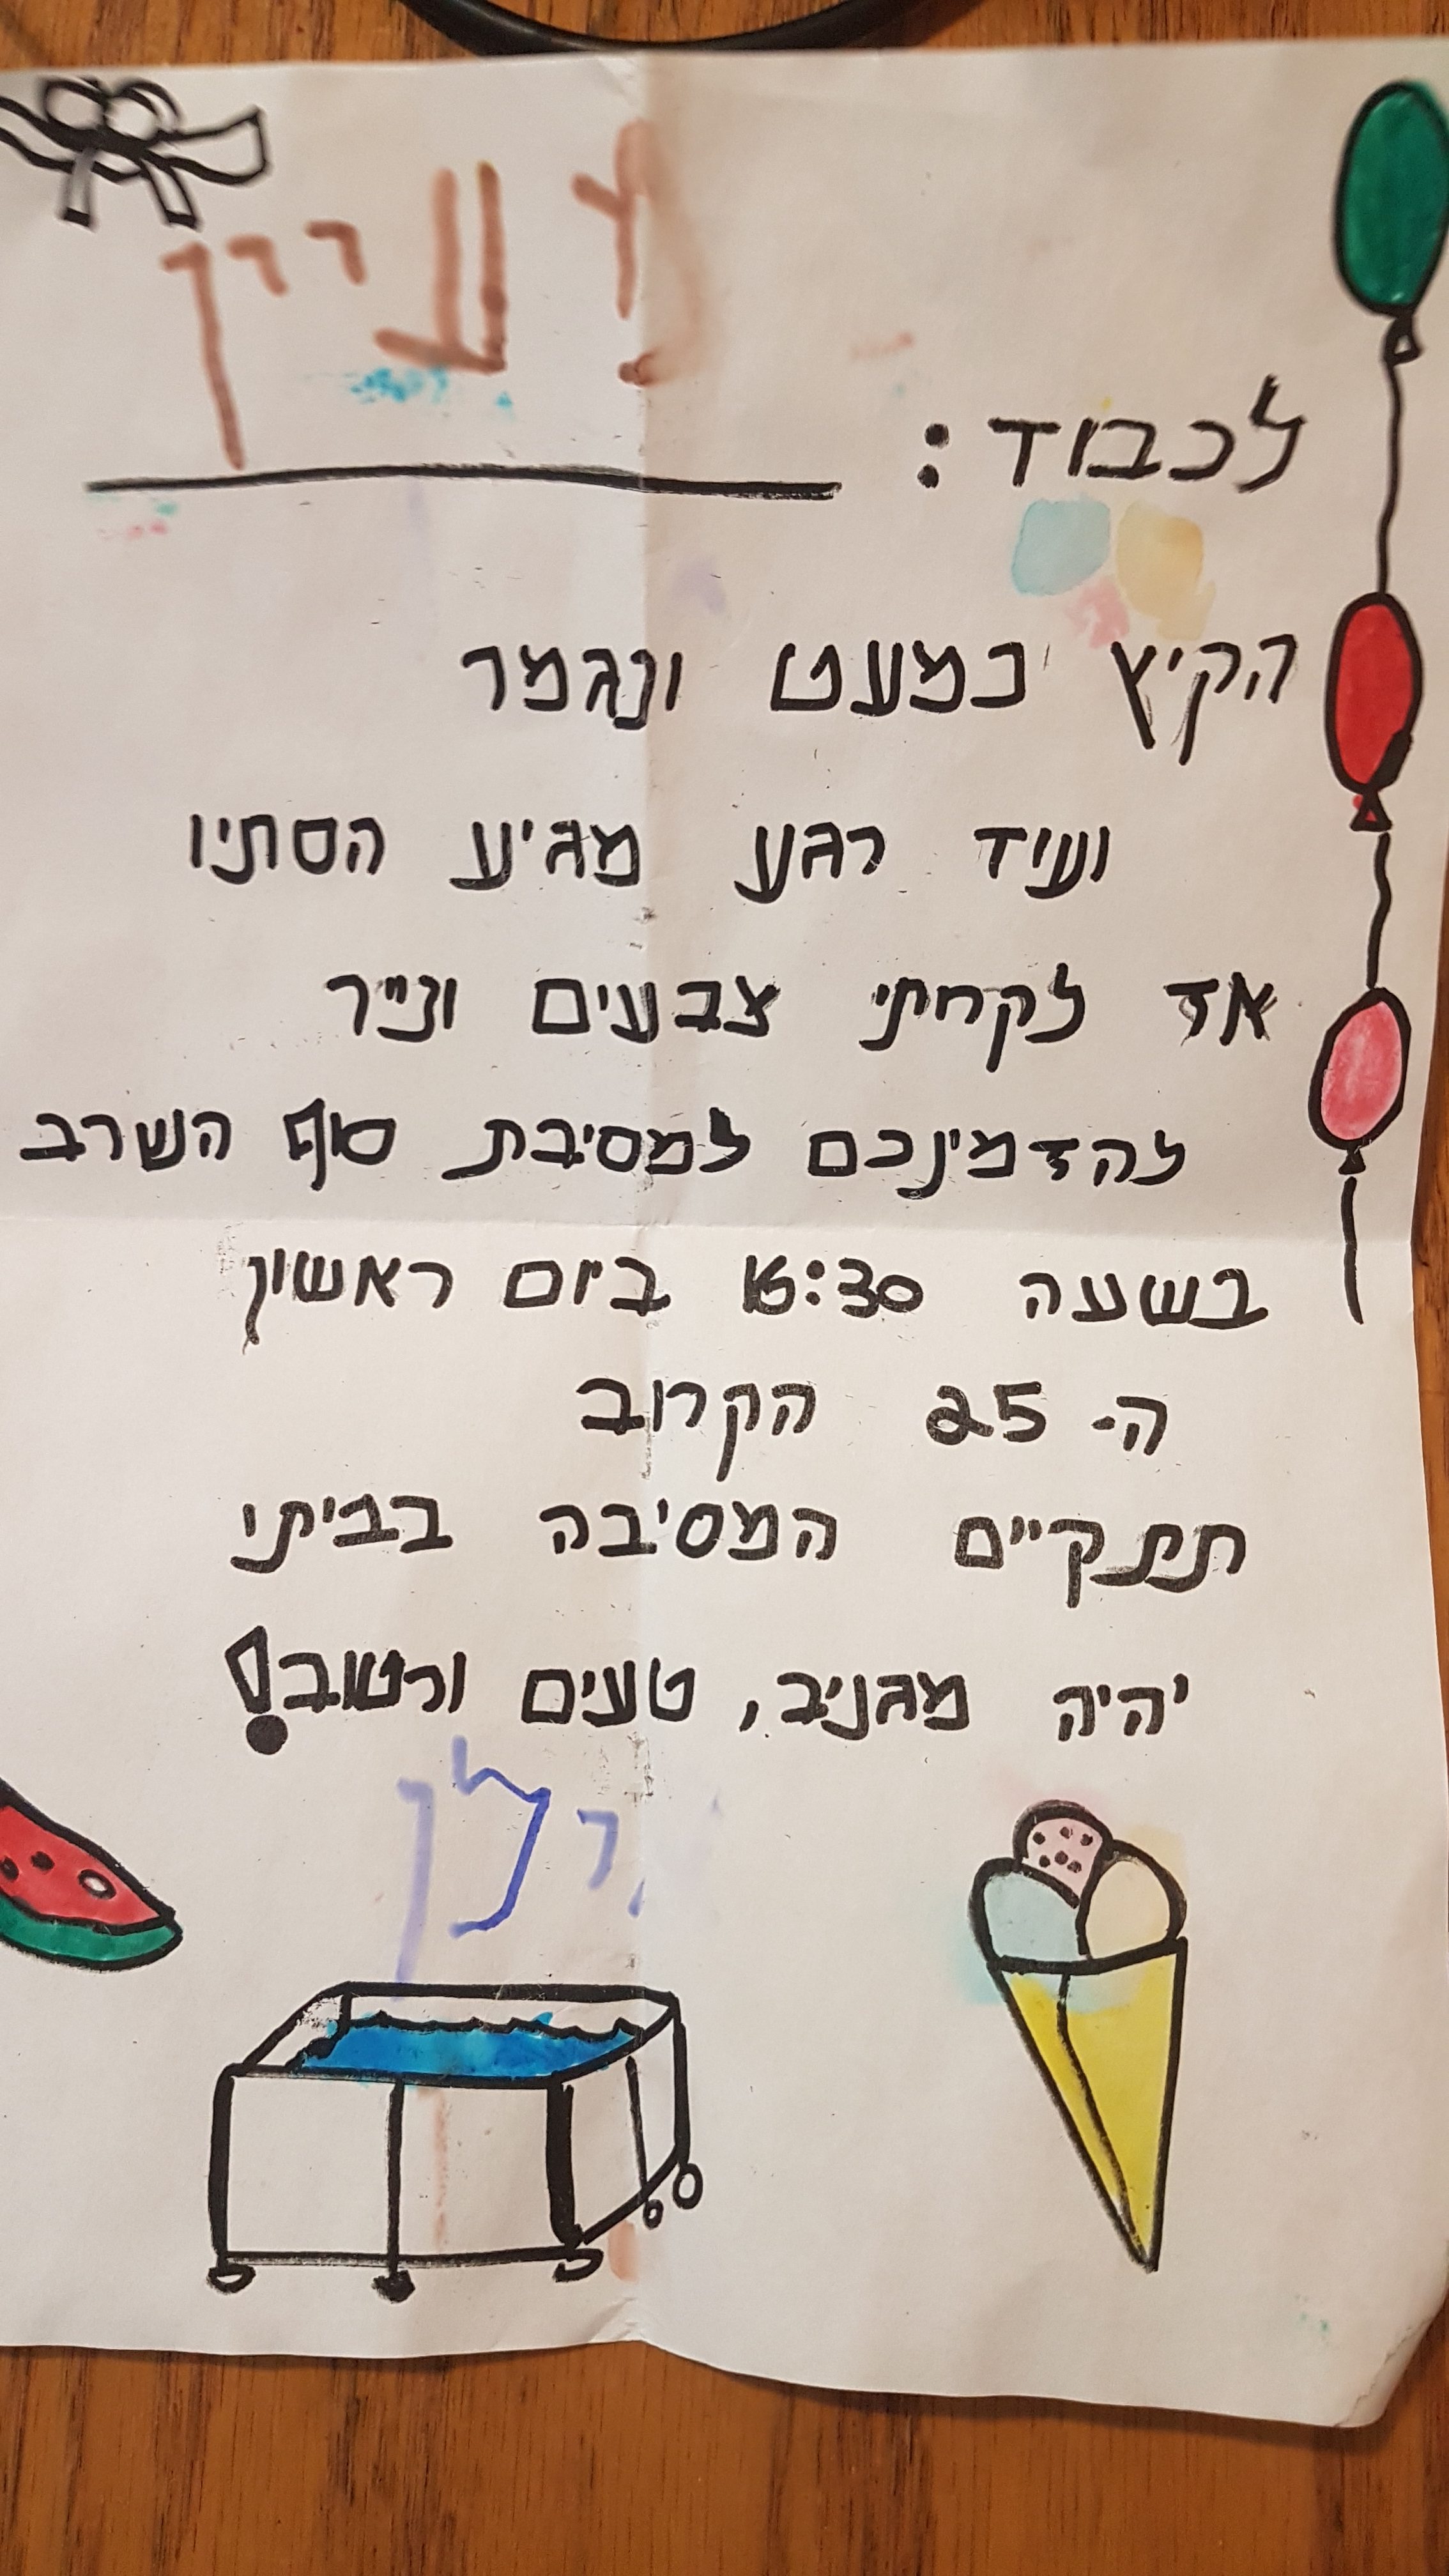 לכבוד:
הקיץ כמעט ונגמר
ועוד רגע מגיע הסתיו
אז לקחתי צבעים ונייר
להזמינכם למסיבת סוף השרב
בשעה 16:30 ביום ראשון
ה- 25 הקרוב
תתקיים המסיבה בביתי
יהיה מגניב, טעים ורטוב!